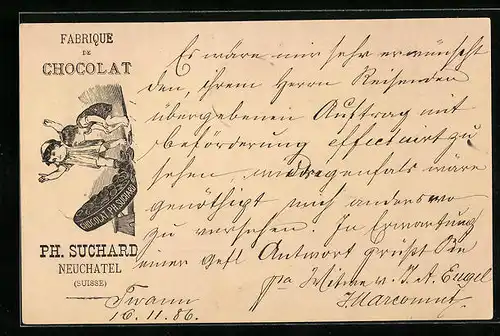 FABRIQUE
DE
CHOCOLAT
CHOCOLAT PH. SUCHARD
PH. SUCHARD
NEUCHATEL
(SUISSE)
Es wäre mir sehr erwünscht
den, ihrem Herrn Reisenden
übergebenen Auftrag mit
beförderung effectuirt zu
sehen, widrigenfals wäre
genöthigt mich anderswo
zu versehen. In Erwartung
einer gefl Antwort grüßt Sie
pa Witwe v. J. A. Engel
Twann
16. 11. 86.